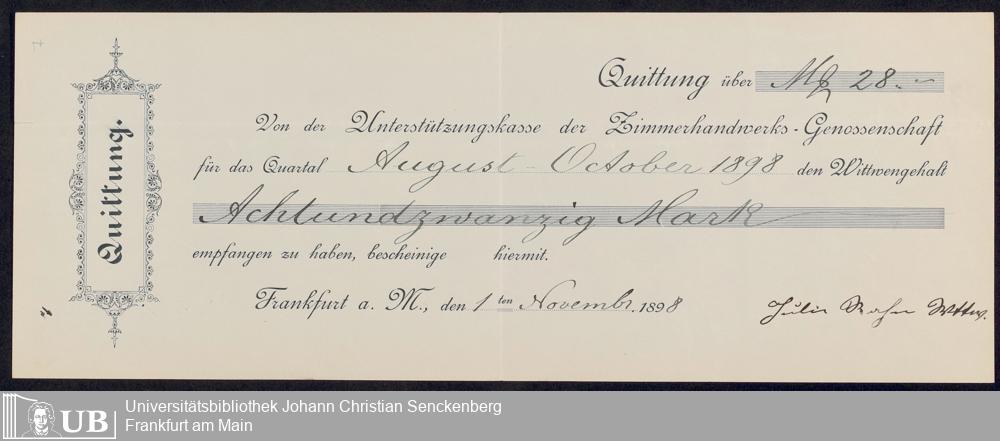 Quittung.
Quittung über Mk 28.-
Von der Unterstützungskasse der Zimmerhandwerks-Genossenschaft
für das Quartal August - October 1898 den Wittwengehalt
Achtundzwanzig Mark
empfangen zu haben, bescheinige hiermit.
Frankfurt a. M., den 1ten Novembr. 1898
Wttw.
UB
Universitätsbibliothek Johann Christian Senckenberg
Frankfurt am Main